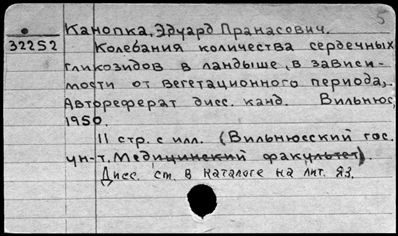 5
Канопка, Эдуард Пранасович.
32252
Колебания количества сердечных
гликозидов в ландыше, в зависи-
мости от вегетационного периода,.
Автореферат дисс. канд. Вильнюс,
1950.
11 стр. с илл. (Вильнюсский гос.
ун-т. Медицинский факультет).
Дисс. ст. в каталоге на лит. яз.